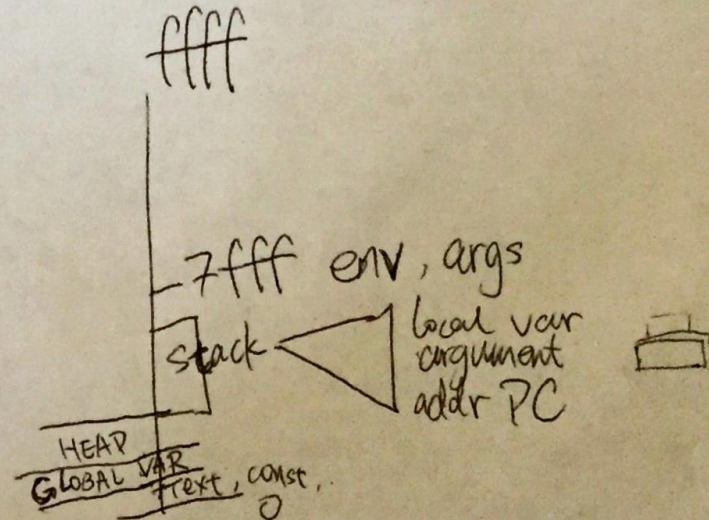 ffff
7fff env, args
stack
local var
argument
addr PC
HEAP
GLOBAL VAR
Text, const..
0